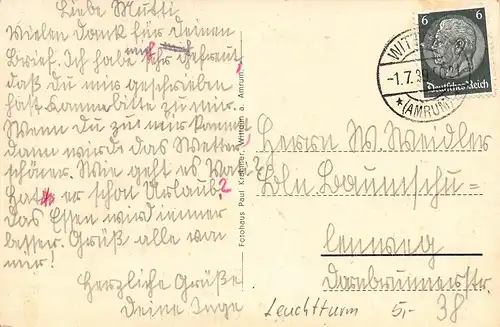 Liebe Mutti
Vielen Dank für deinen
Brief. Ich habe mich sehr gefreut,
daß du mir geschrieben
hast. Komme bitte zu mir.
Wenn du zu mir kommst
dann wird das Wetter
schöner. Wie geht es Va?
Hat er schon Urlaub?
das Essen wird immer
besser. Grüß alle von
mir!
Herzliche Grüße
Deine Inge
Fotohaus Paul Wittdün a. Amrum
6 6
Deutsches Reich
WITT
-1.7.39
(AMRUM)
Herrn W. Weidler
Köln Baumschu-
lenweg
str.
Leuchtturm 5,- 38